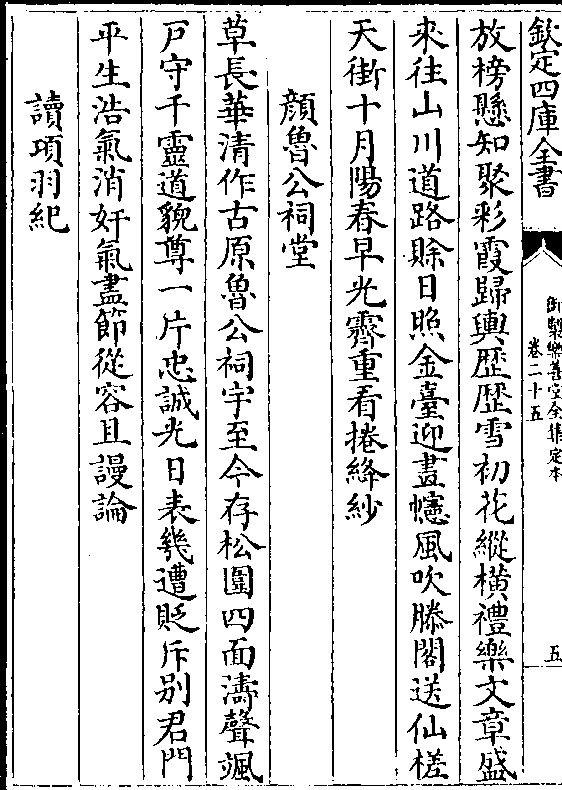 欽定四庫全書
御製樂善堂全集定本
卷二十五
五
放榜懸知聚彩霞歸輿歴歴雪初花縱横禮樂文章盛
來往山川道路賖日照金臺迎畫幰風吹滕閣送仙槎
天街十月陽春早光霽重看捲絳紗
顔魯公祠堂
草長華清作古原魯公祠宇至今存松圍四面濤聲颯
戸守千靈道貌尊一片忠誠光日表幾遭貶斥别君門
平生浩氣消奸氣盡節從容且謾論
讀項羽紀